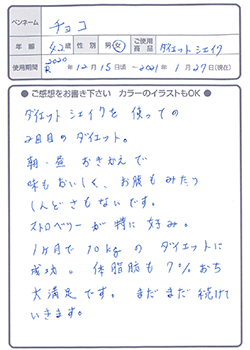 ペンネーム チョコ
年齢 42才 性別 男・女 ご使用商品 ダイエットシェイク
使用期間 2020 R 12月15日頃〜2021年1月27日(現在)
● ご感想をお書き下さい カラーのイラストもOK ●
ダイエットシェイクを 使っての
2回目のダイエット。
朝・昼 おきかえで
味もおいしく、お腹もみたう
しんどさもないです。
ストロベリーが特に好み。
1ヶ月で10kgの ダイエットに
成功。体脂肪も7%おち
大満足です。まだまだ続けて
いきます。